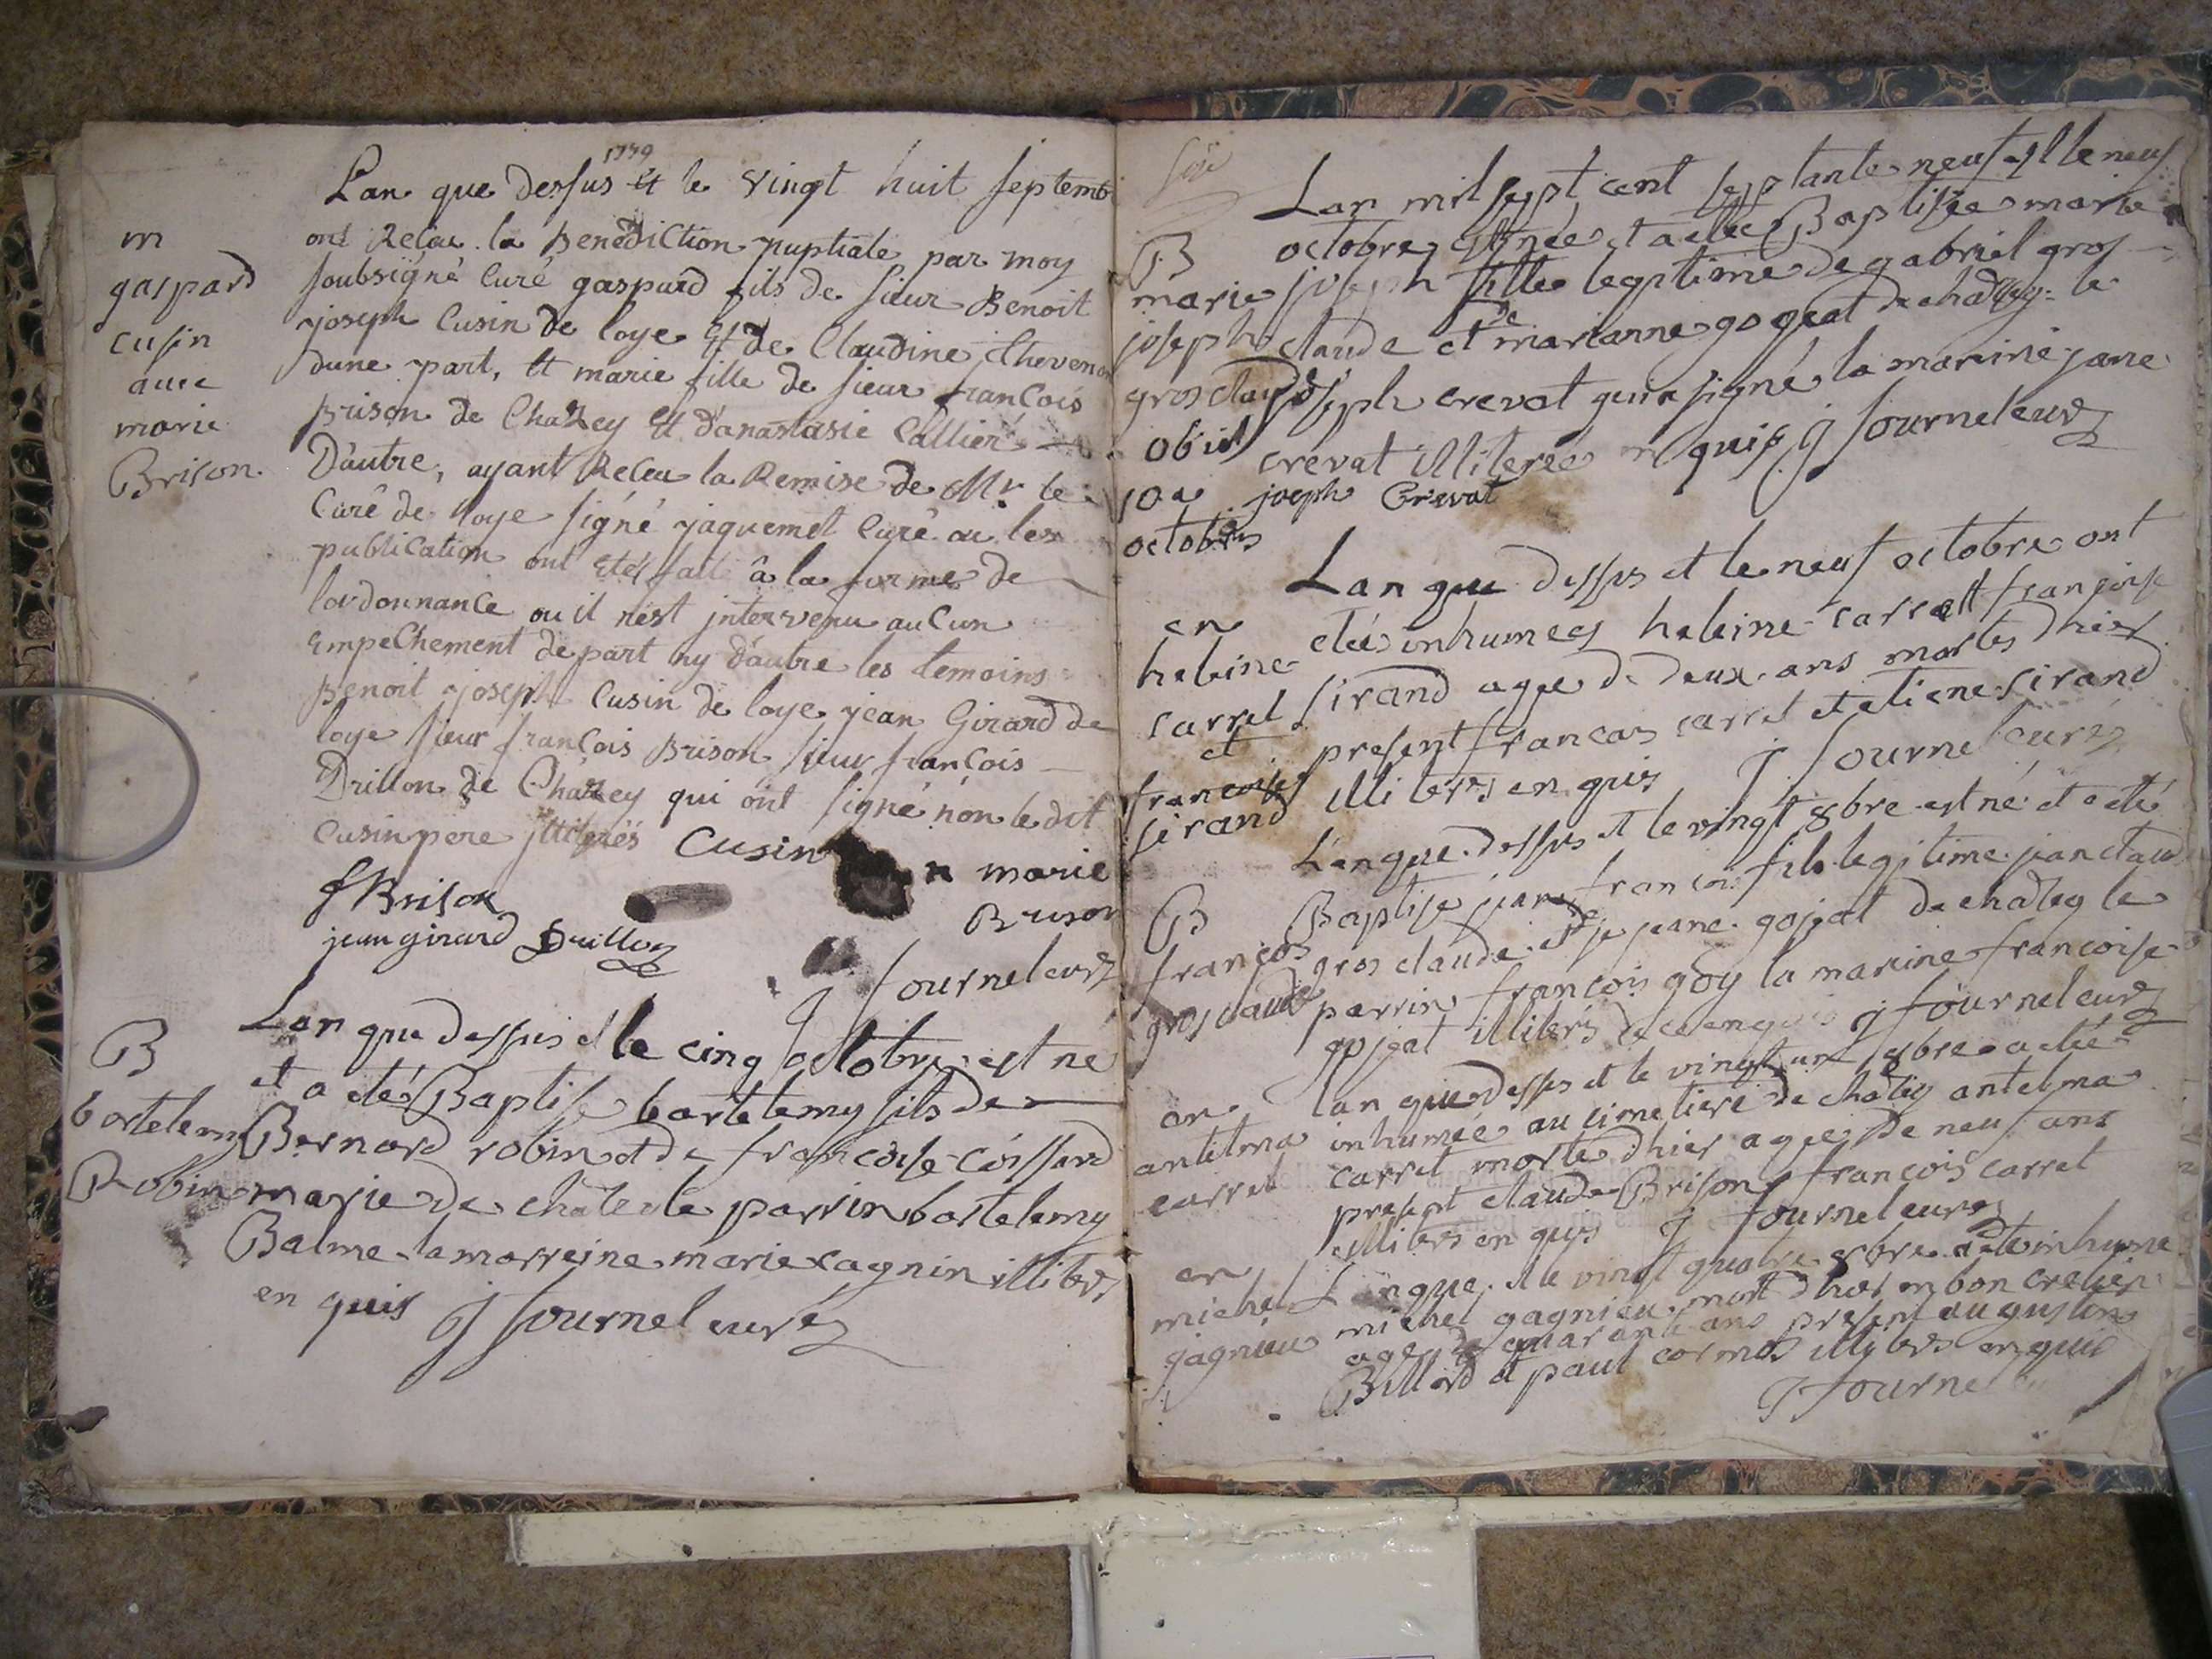 1779
Lan que dessus Et le vingt huit septemb
ont Reçeu la Benediction nuptiale par moy
soubsigné Curé gaspard fils de sieur Benoit
joseph Cusin de loye Et de Claudine Chevenon
dune part, Et marie fille de sieur françois
Brison de Chazey Et d'anastasie Callier
D'autre, ayant Reçeu la Remise de Mr. le
Curé de loye signé jaquemet Curé ou les
publication ont etés fait â la forme de
lordonnance ou il nest intervenu aucun
Empechement depart ny d'autre les temoins
Benoit joseph Cusin de loye jean Girard de
loye sieur françois Brison sieur françois
Drillon de Chazey qui ont signé non le dit
Cusin pere illiterés
m
gaspard
cusin
avec
marie
Brison.
Cusin
marie
Brison
f Brison
jean girard Drillon
J fournel curé
B
bartelemy
Robin
Lan que dessus et le cinq octobre est ne
et a eté Baptise bartelemy fils de
Bernard robin et de françoise coissard
marie de chatele parrin bartelemy
Balme la marreine marie cagnin illiters
en quis J fournel curé
Lan mil sept cent septante neuf et le neuf
octobre est née et a etée Baptisée marie
joseph fille legitime de gabriel gros
claude et de marianne gogeat de chazey le
joseph crevat qui a signé la marine jane
crevat illiterée en quis J fournel curé
joseph Crevat
B
marie
joseph
gros claude
obiit
10 a
octobris
Lan que dessus et le neuf octobre ont
etées inhumees heleine carret et françoise
sirand agee de deux ans mortes dhier
present francois carret et etiene sirand
illiters en quis J fournel curé
en
heleine
carret
et
francoise
sirand
Lan que dessus et le vingt 8bre est né et a eté
Baptise jean françois fils legitime jean claud
gros claude et de jeane gojat de chazey le
parrin françois goy la marine francoise
gojat illiters de ce enquis J fournel curé
B
françois
gros claude
lan que dessus et le vingt un 8bre a etée
inhumée au cimetiere de chazey antelma
carret morte dhier agee de neuf ans
present claude Brison françois carret
illiters en quis J fournel curé
en
antelma
carret
Lan que et le vingt quatre 8bre a ete inhume
michel gagnieu mort dhier en bon cretien
age de quarante ans present augustin
Billard et paul cormos illiters en quis
J fournel
en
michel
gagnieu